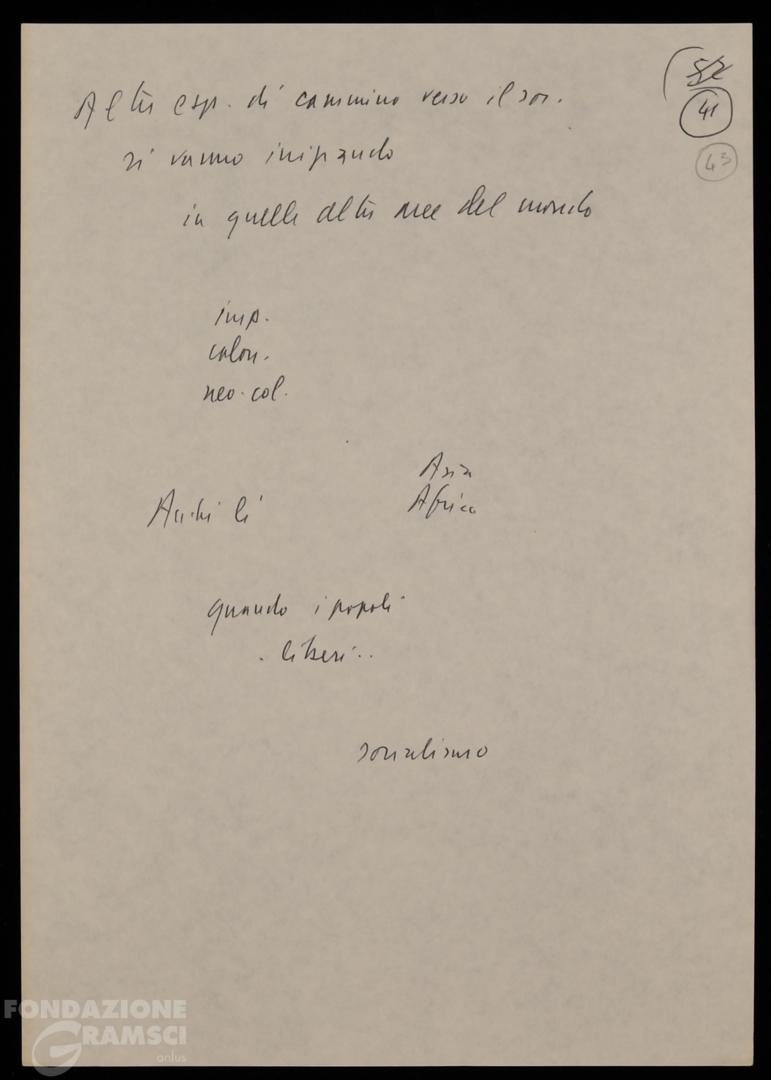 52
41
43
Altre esp. di cammino verso il soc.
si vanno iniziando
in quelle altre aree del mondo
imp.
colon.
neo-col.
Asia
Africa
Anche lì
quando i popoli
liberi..
socialismo
FONDAZIONE
GRAMSCI
onlus